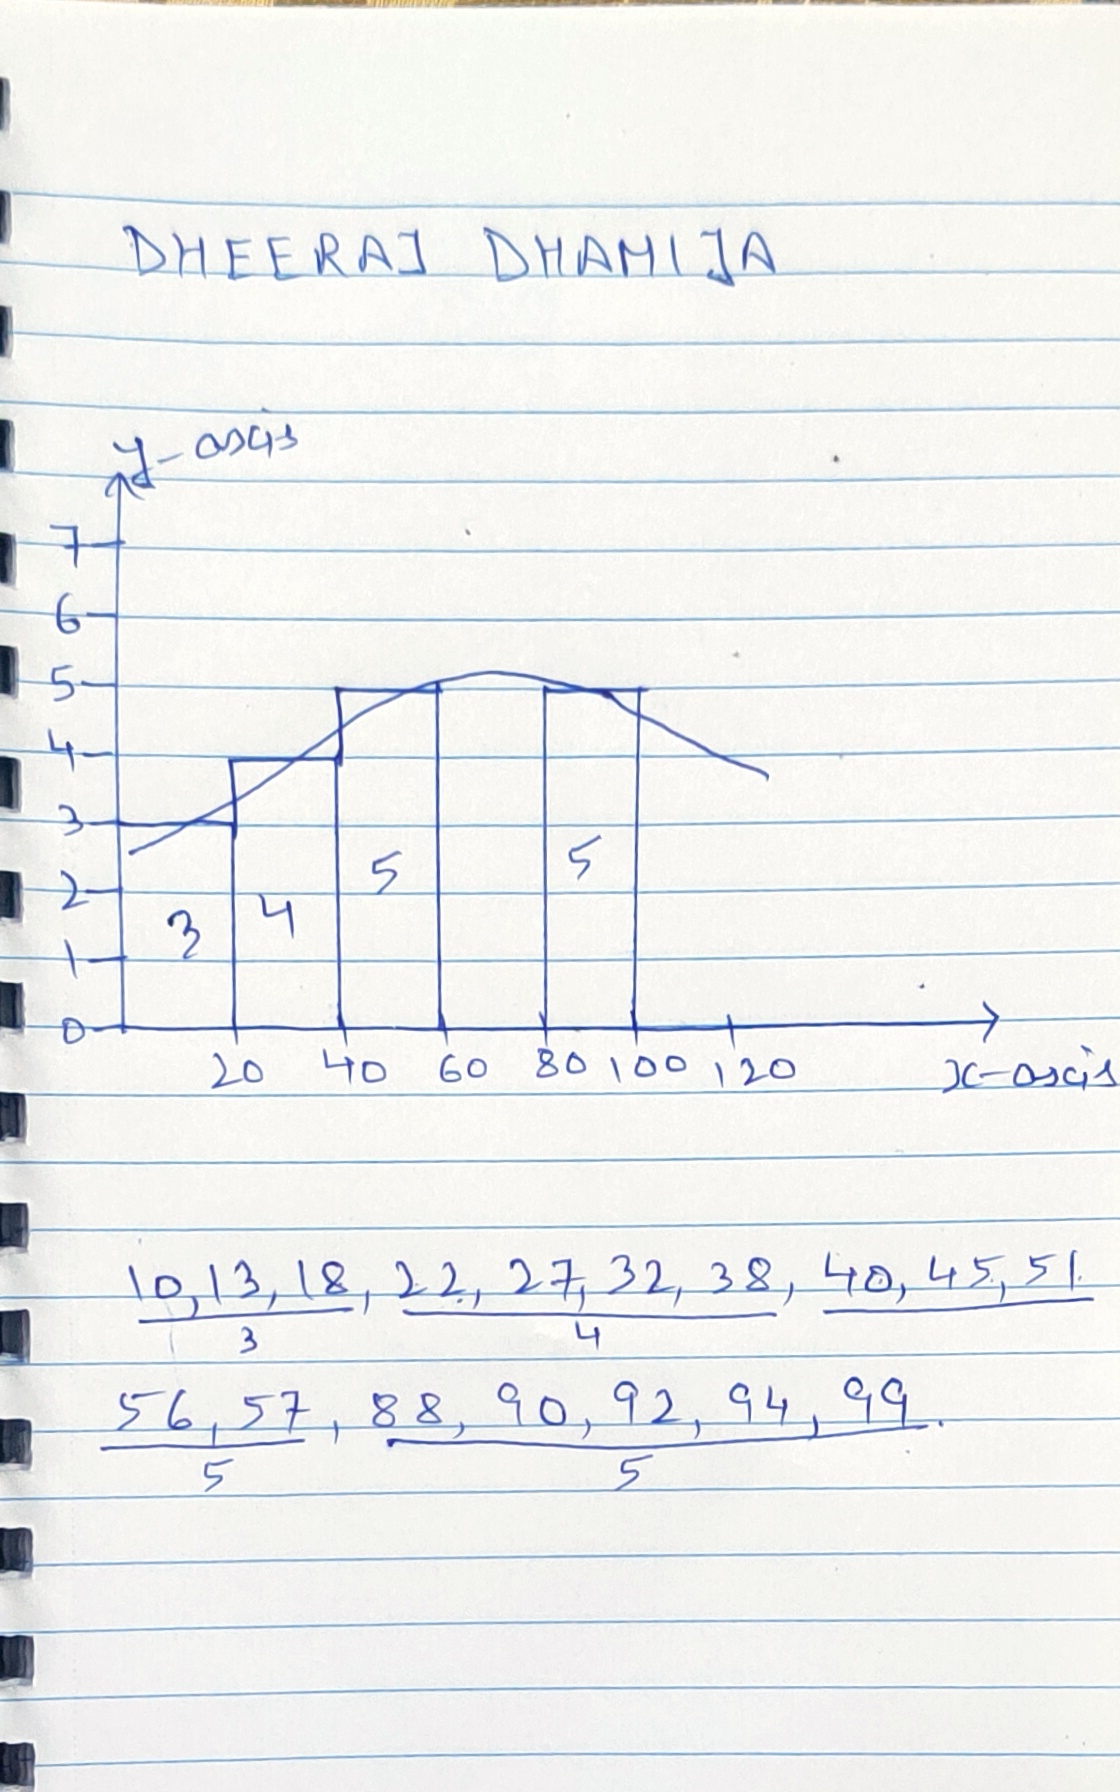 DHEERAJ DHAMIJA
y-axis
7
6
5
4
3
2
1
0
5 5
3 4
20 40 60 80 100 120
x-axis
10, 13, 18, 22, 27, 32, 38, 40, 45, 51
3 4
56, 57, 88, 90, 92, 94, 99.
5 5